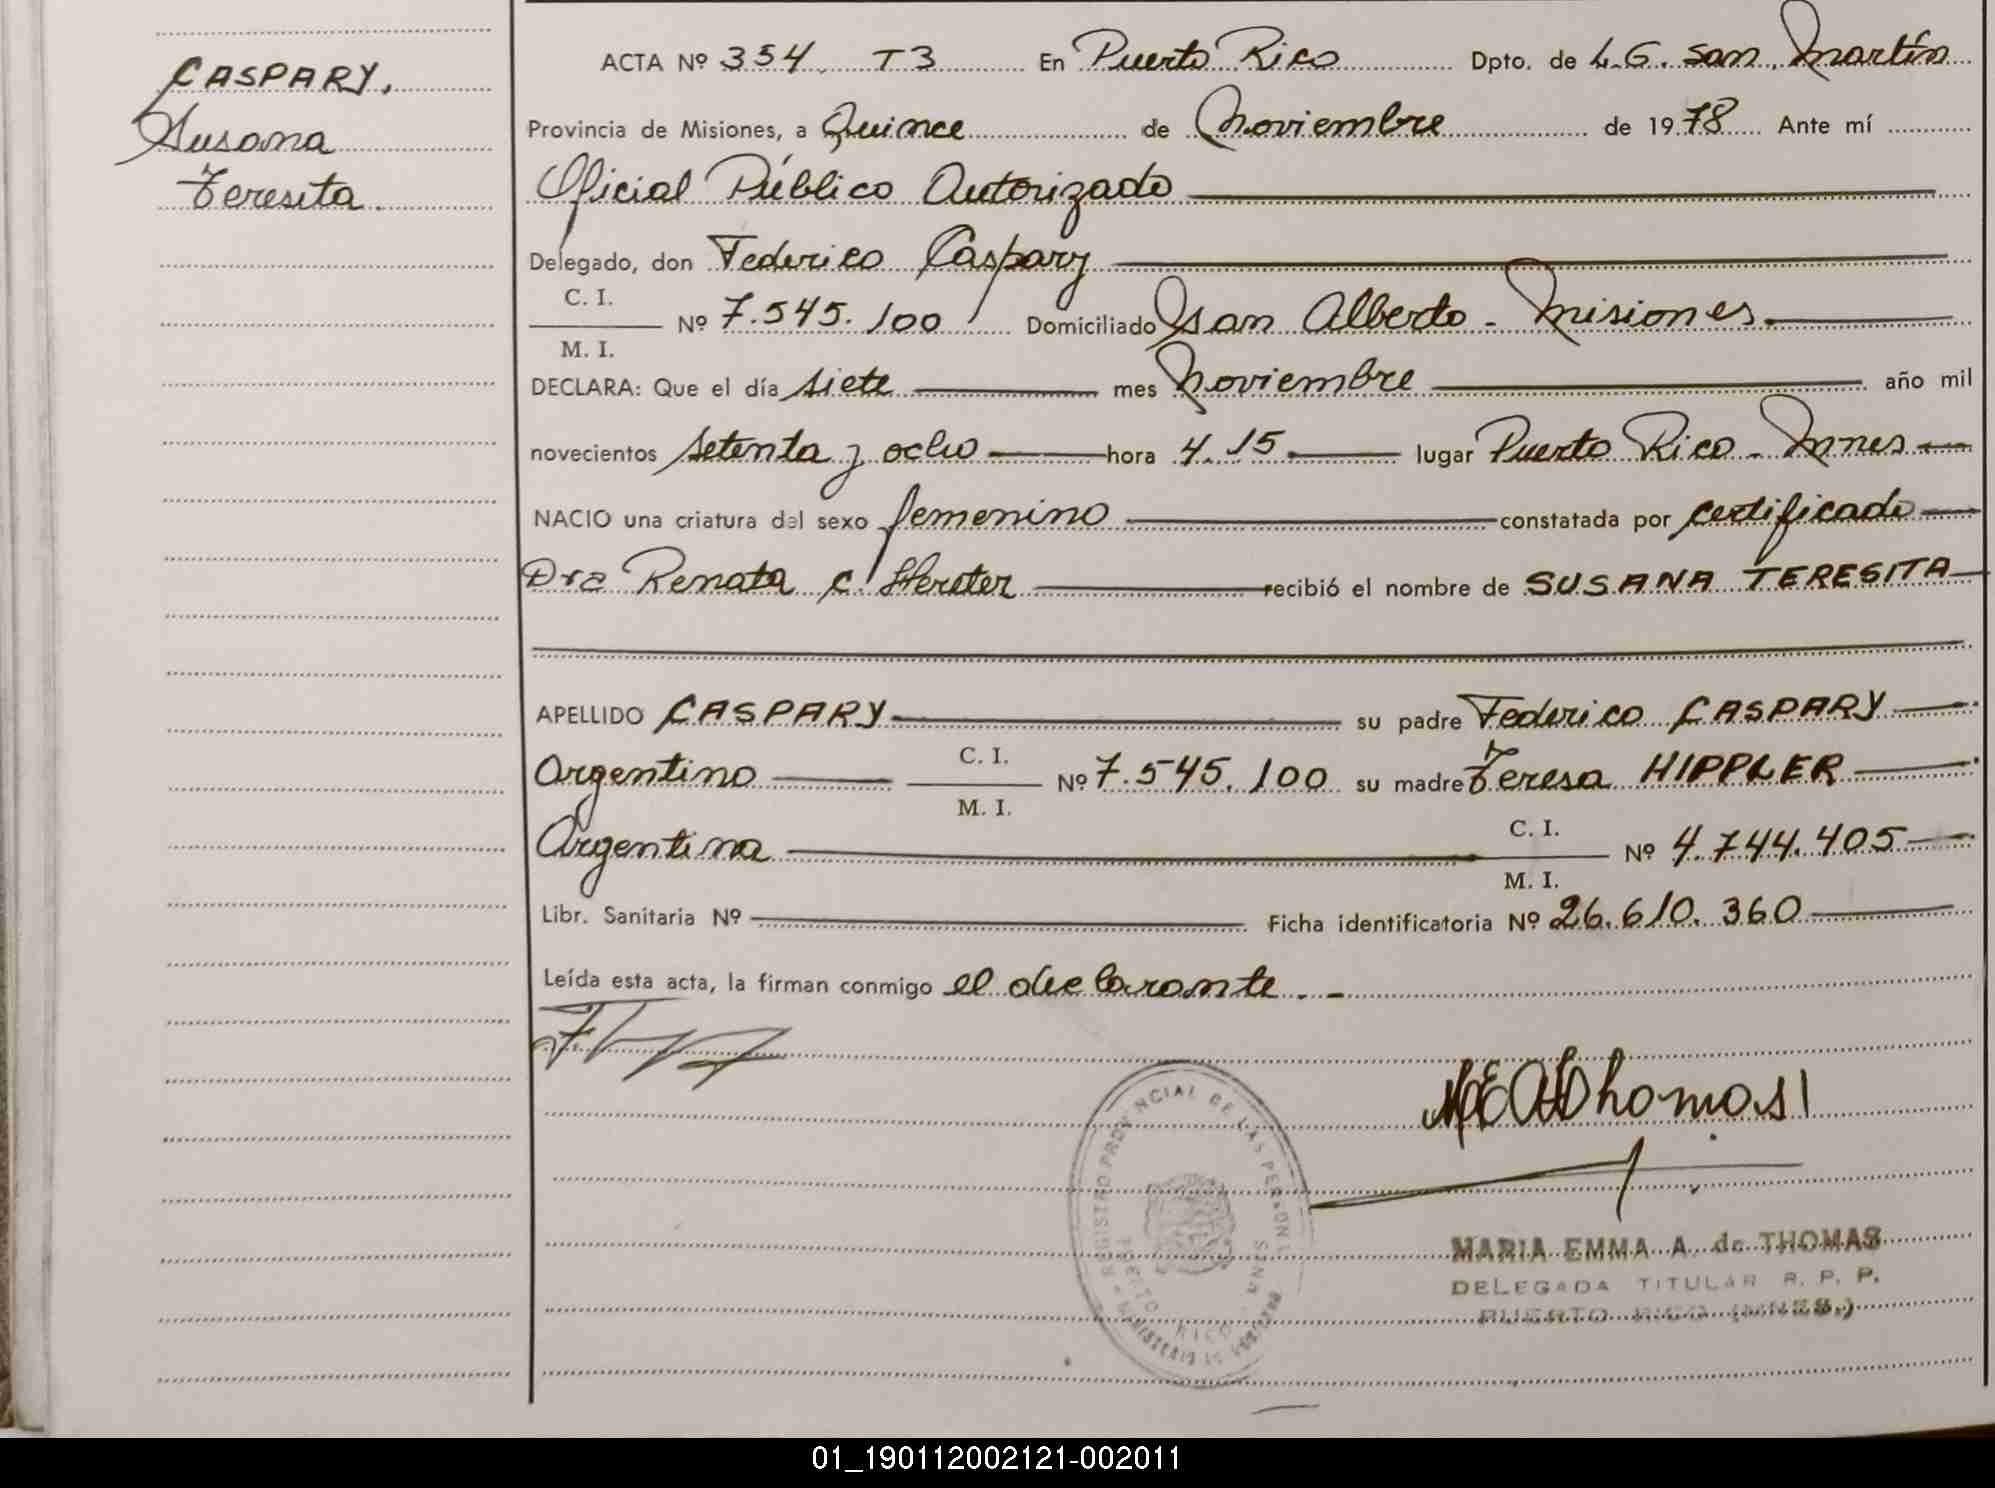 CASPARY,
Susana
Teresita.
ACTA Nº 354 T3 En Puerto Rico Dpto. de L.G. San Martín
Provincia de Misiones, a Quince de Noviembre de 1978 Ante mí
Oficial Público Autorizado
Delegado, don Federico Caspary
C. I.
Nº 7.545.100 Domiciliado San Alberto - Misiones.
M. I.
DECLARA: Que el día siete mes Noviembre año mil
novecientos setenta y ocho hora 4.15 lugar Puerto Rico - Mnes
NACIO una criatura del sexo femenino constatada por certificado
Dra Renata C. recibió el nombre de SUSANA TERESITA
APELLIDO CASPARY su padre Federico CASPARY
Argentino C. I. Nº 7.545.100 su madre Teresa HIPPLER
M. I.
Argentina C. I. Nº 4.744.405
M. I.
Libr. Sanitaria Nº Ficha identificatoria Nº 26.610.360
Leída esta acta, la firman conmigo el declarante.-
REGISTRO PROVINCIAL DE LAS PERSONAS
PUERTO RICO
MINISTERIO DE GOBIERNO
MARIA EMMA A. de THOMAS
DELEGADA TITULAR R. P. P.
PUERTO RICO (MNES.)
01_190112002121-002011